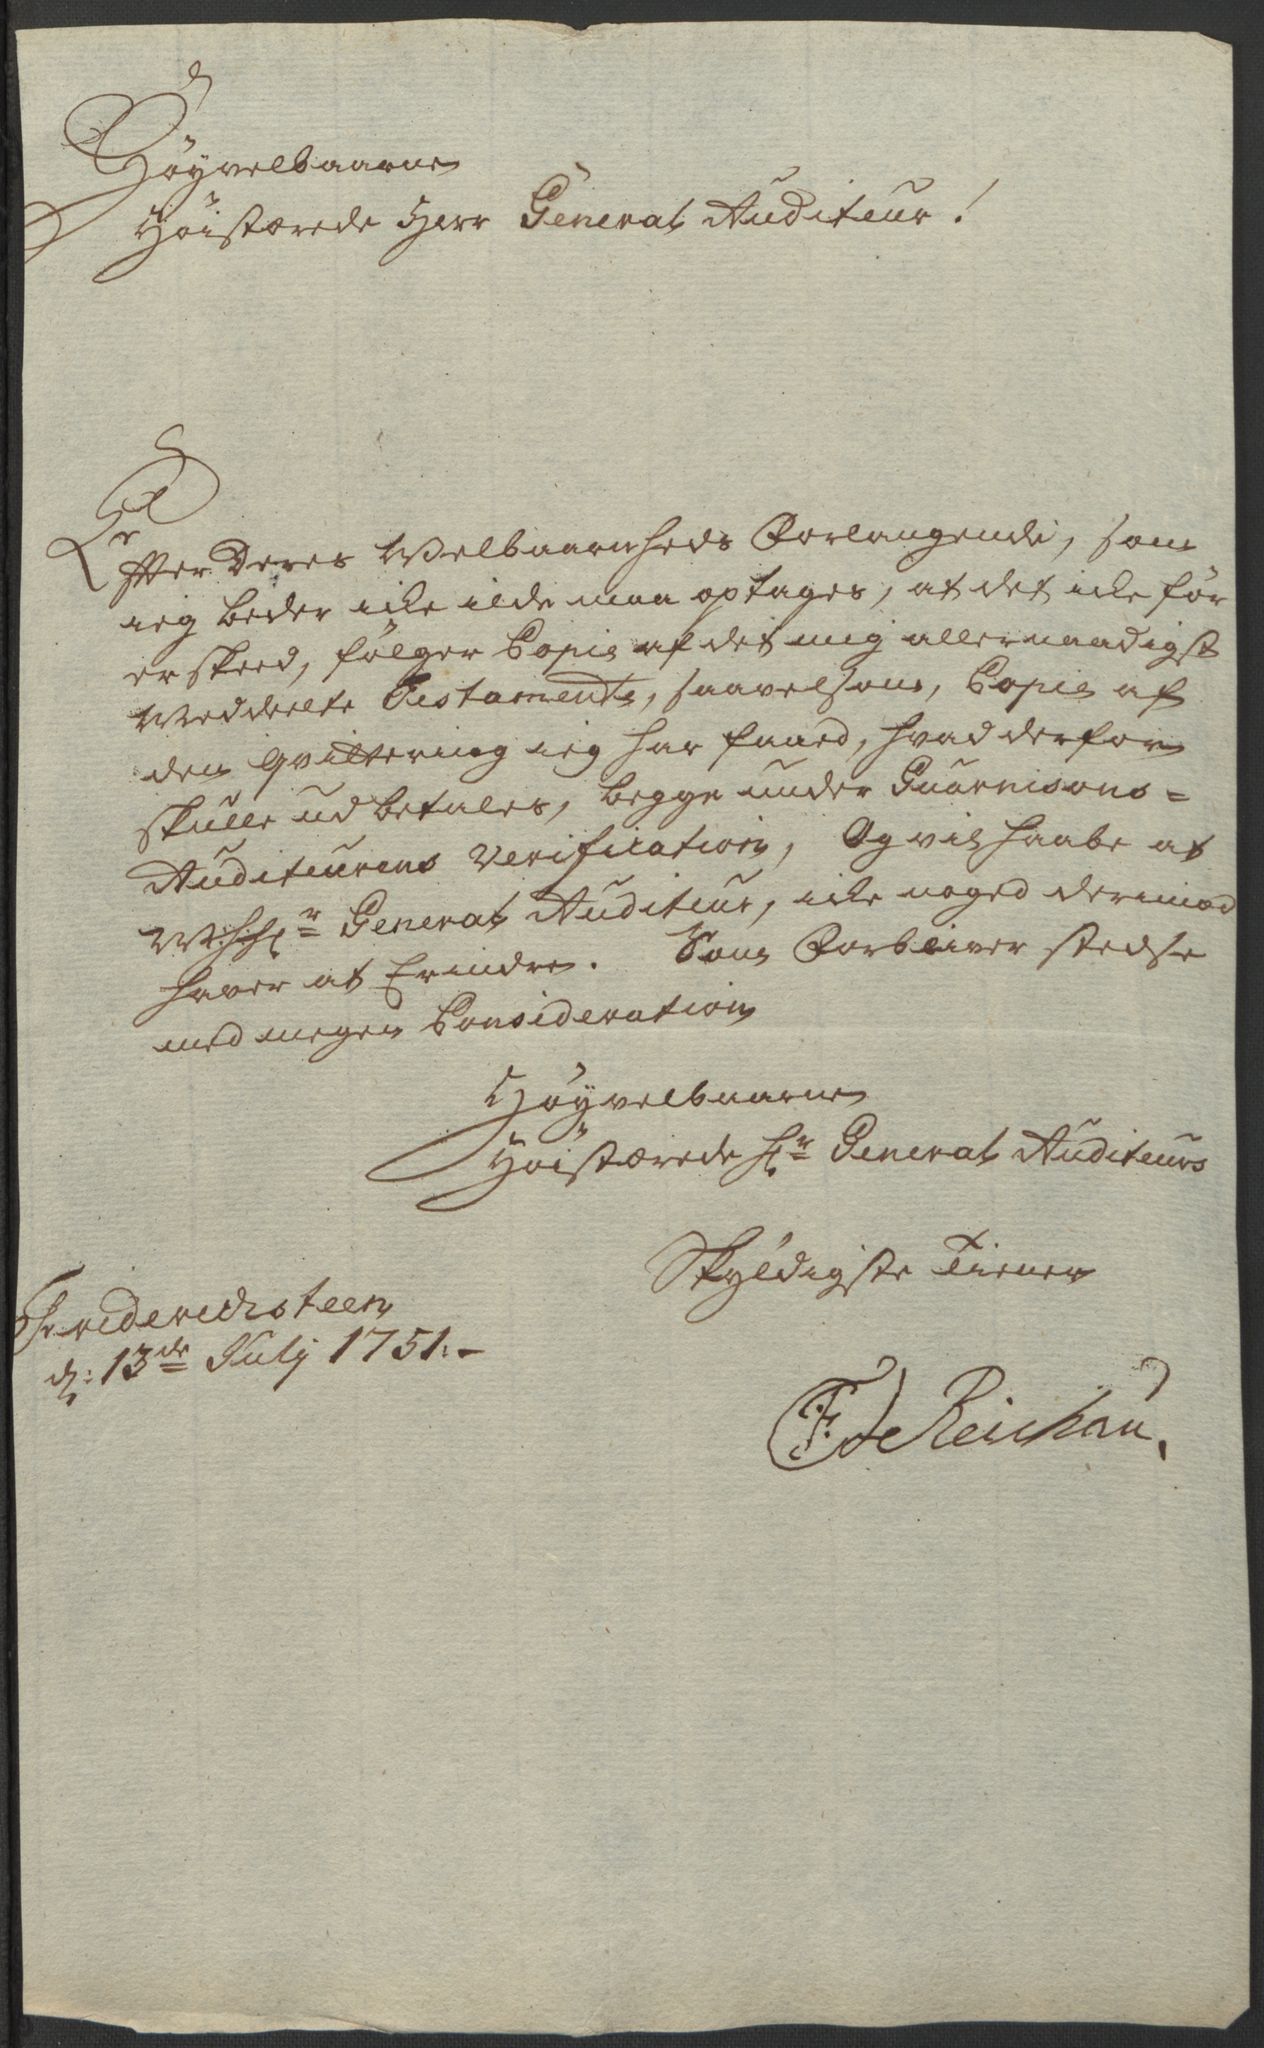 Höyvelbaarne
Höistærede Herr General Auditeur!
Effter Deres Welbaarnheds Forlangende, som
ieg beder icke ilde maa optages, at det icke för
er skeed, fölger Copie af det mig allernaadigst
Meddeelte Testamente, saavelsom, Copie af
den qvittering ieg har faaed, hvad derfor
skulle udbetales, begge under Guarnisons=
Auditeurens Verification, Og vil haabe at
W: Hr General Auditeur, icke noged derimod
haver at Erindre. Som Forbliver stedse
med megen Consideration
Höyvelbaarne
Höistærede Hr General Auditeurs
Skyldigste Tiener
Friderichsteen
d: 13de July 1751.
F de Reichau.